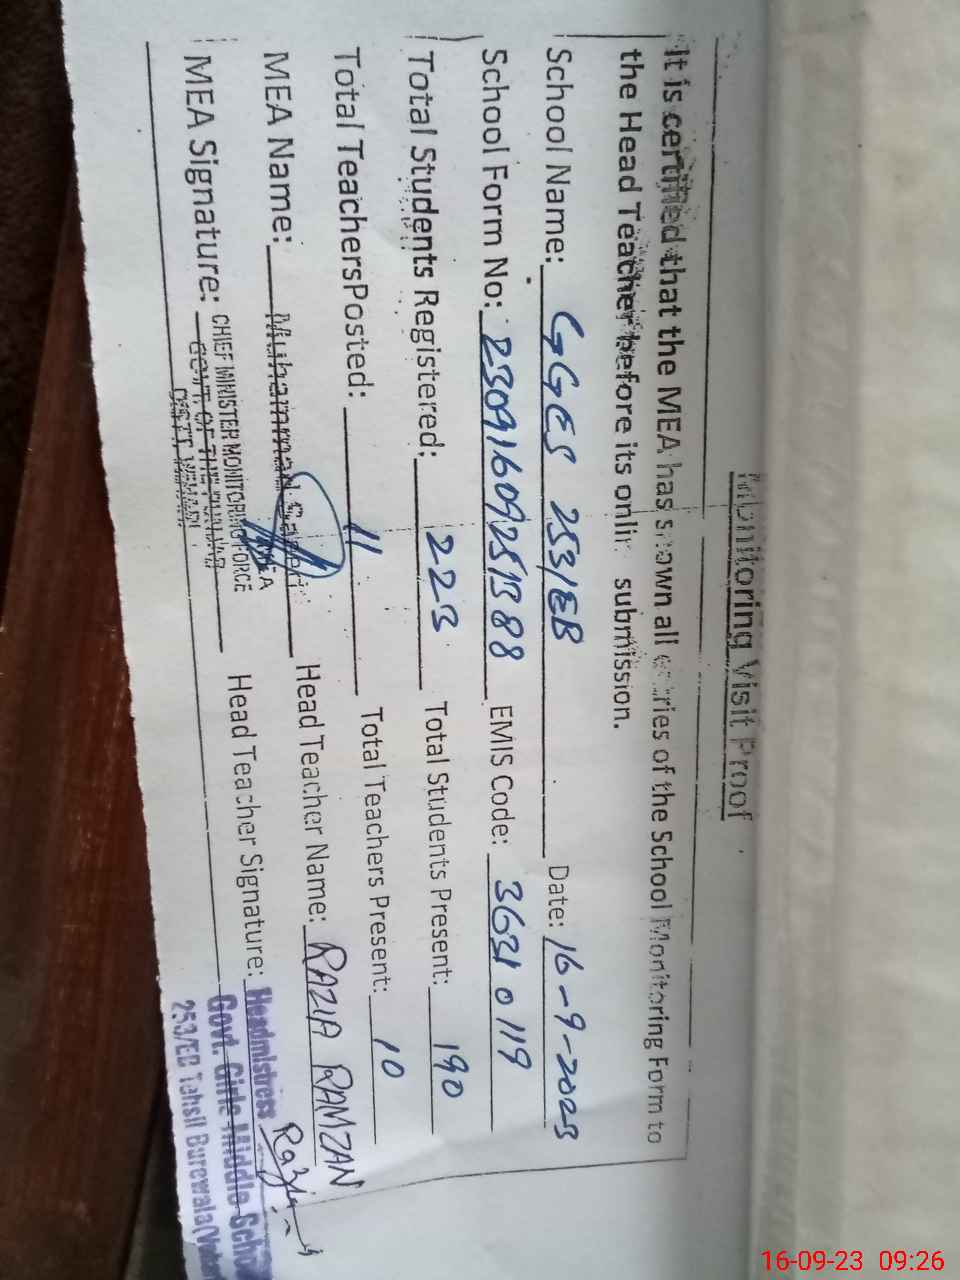 Monitoring Visit Proof
It is certified that the MEA has shown all entries of the School Monitoring Form to
the Head Teacher before its online submission.
School Name: GGES 253/EB Date: 16-9-2023
School Form No: EMIS Code: 36210119
Total Students Registered: 223 Total Students Present: 190
Total TeachersPosted: 11 Total Teachers Present: 10
MEA Name: Muhammad Head Teacher Name: RAZIA RAMZAN
MEA Signature: Head Teacher Signature: Razia
CHIEF MINISTER MONITORING FORCE
GOVT. OF THE PUNJAB
DISTT. VEHARI
MEA
Headmistress
Govt. Girls Middle School
253/EB Tehsil Burewala
16-09-23 09:26